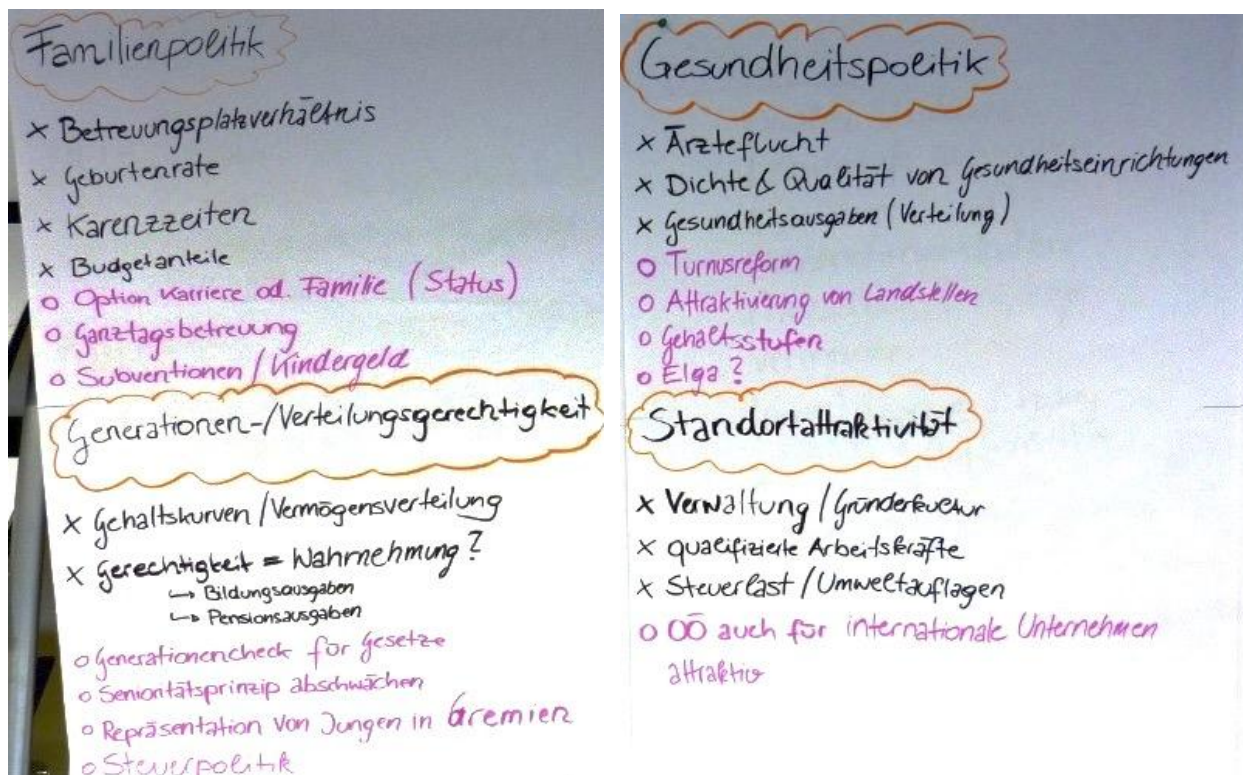 Familienpolitik
x Betreuungsplatzverhältnis
x Geburtenrate
x Karenzzeiten
x Budgetanteile
o Option Karriere od. Familie (Status)
o Ganztagsbetreuung
o Subventionen / Kindergeld
Generationen-/Verteilungsgerechtigkeit
x Gehaltskurven / Vermögensverteilung
x Gerechtigkeit = Wahrnehmung?
↳ Bildungsausgaben
↳ Pensionsausgaben
o Generationencheck für Gesetze
o Senioritätsprinzip abschwächen
o Repräsentation von Jungen in Gremien
o Steuerpolitik
Gesundheitspolitik
x Ärzteflucht
x Dichte & Qualität von Gesundheitseinrichtungen
x Gesundheitsausgaben (Verteilung)
o Turnusreform
o Attraktivierung von Landstellen
o Gehaltsstufen
o Elga?
Standortattraktivität
x Verwaltung / Gründerkultur
x qualifizierte Arbeitskräfte
x Steuerlast / Umweltauflagen
o OÖ auch für internationale Unternehmen
attraktiv